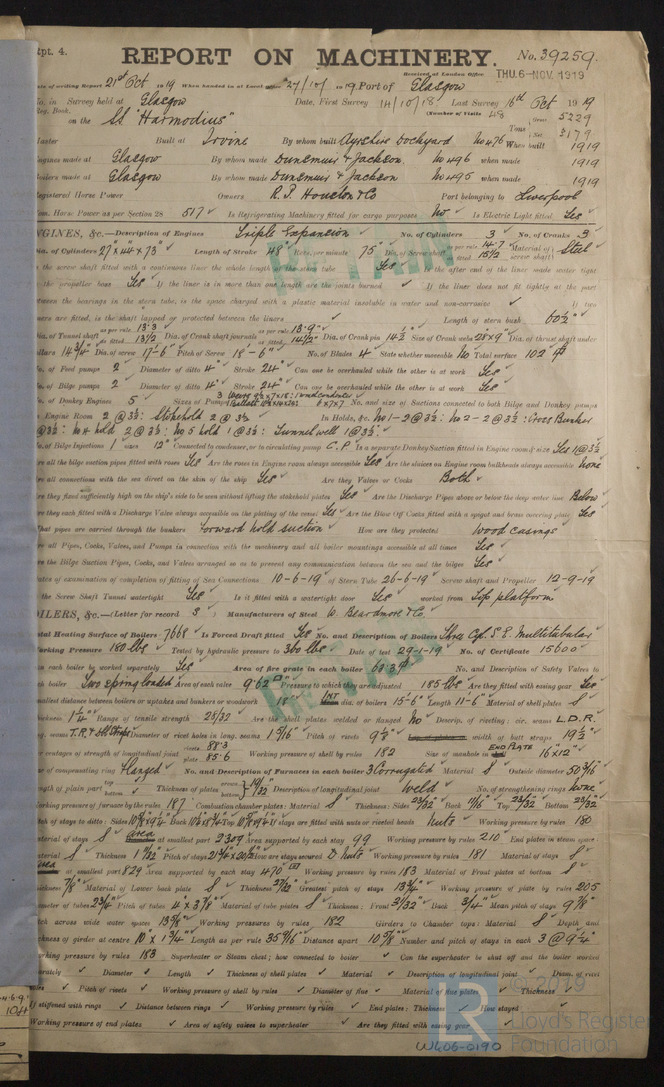 Rpt. 4.
REPORT ON MACHINERY. No. 39259.
Received at London Office THU. 6-NOV. 1919
Date of writing Report 21st Oct 1919 When handed in at Local Office 27/10/ 1919 Port of Glasgow
No. in Survey held at Glasgow Date, First Survey 14/10/18 Last Survey 16th Oct 1919
Reg. Book. (Number of Visits 48
on the SS "Harmodius" Tons Gross 5229 Net 3179
Master Built at Irvine By whom built Ayrshire Dockyard No 476 When built 1919
Engines made at Glasgow By whom made Dunsmuir & Jackson No 496 when made 1919
Boilers made at Glasgow By whom made Dunsmuir & Jackson No 495 when made 1919
Registered Horse Power Owners R. P. Houston & Co Port belonging to Liverpool
Nom. Horse Power as per Section 28 517 Is Refrigerating Machinery fitted for cargo purposes No Is Electric Light fitted Yes
ENGINES, &c.—Description of Engines Triple Expansion No. of Cylinders 3 No. of Cranks 3
Dia. of Cylinders 27" x 44" x 73" Length of Stroke 48" Revs. per minute 75 Dia. of Screw shaft as per rule 14.7 as fitted 15 1/2 Material of screw shaft Steel
Is the screw shaft fitted with a continuous liner the whole length of the stern tube Yes Is the after end of the liner made water tight
in the propeller boss Yes If the liner is in more than one length are the joints burned If the liner does not fit tightly at the part
between the bearings in the stern tube, is the space charged with a plastic material insoluble in water and non-corrosive If two
liners are fitted, is the shaft lapped or protected between the liners Length of stern bush 60 1/2"
Dia. of Tunnel shaft as per rule 13.3 as fitted 13 1/2 Dia. of Crank shaft journals as per rule 13.9" as fitted 14 1/2" Dia. of Crank pin 14 1/2 Size of Crank webs 28 x 9 Dia. of thrust shaft under
collars 14 3/4" Dia. of screw 17-6" Pitch of Screw 18-6" No. of Blades 4 State whether moveable No Total surface 102 sq ft
No. of Feed pumps 2 Diameter of ditto 4" Stroke 24" Can one be overhauled while the other is at work Yes
No. of Bilge pumps 2 Diameter of ditto 4" Stroke 24" Can one be overhauled while the other is at work Yes
No. of Donkey Engines 5 Sizes of Pumps No. and size of Suctions connected to both Bilge and Donkey pumps
In Engine Room 2 @ 3 1/2: Stokehold 2 @ 3 1/2 In Holds, &c. No 1-2 @ 3 1/2: No 2-2 @ 3 1/2: Cross Bunker
@ 3 1/2: No 4 hold 2 @ 3 1/2: No 5 hold 1 @ 3 1/2: Tunnel well 1 @ 3 1/2:
No. of Bilge Injections 1 sizes 12" Connected to condenser, or to circulating pump C.P. Is a separate Donkey Suction fitted in Engine room & size Yes 1 @ 3 1/2
Are all the bilge suction pipes fitted with roses Yes Are the roses in Engine room always accessible Yes Are the sluices on Engine room bulkheads always accessible none
Are all connections with the sea direct on the skin of the ship Yes Are they Valves or Cocks Both
Are they fixed sufficiently high on the ship's side to be seen without lifting the stokehold plates Yes Are the Discharge Pipes above or below the deep water line Below
Are they each fitted with a Discharge Valve always accessible on the plating of the vessel Yes Are the Blow Off Cocks fitted with a spigot and brass covering plate Yes
What pipes are carried through the bunkers Forward hold suction How are they protected wood casings
Are all Pipes, Cocks, Valves, and Pumps in connection with the machinery and all boiler mountings accessible at all times Yes
Are the Bilge Suction Pipes, Cocks, and Valves arranged so as to prevent any communication between the sea and the bilges Yes
Dates of examination of completion of fitting of Sea Connections 10-6-19 of Stern Tube 26-6-19 Screw shaft and Propeller 12-9-19
Is the Screw Shaft Tunnel watertight Yes Is it fitted with a watertight door Yes worked from Top platform
BOILERS, &c.—(Letter for record S) Manufacturers of Steel W. Beardmore & Co
Total Heating Surface of Boilers 7668 Is Forced Draft fitted Yes No. and Description of Boilers Three Cyl. S.E. Multitubular
Working Pressure 180 lbs Tested by hydraulic pressure to 360 lbs Date of test 29-1-19 No. of Certificate 15600
Can each boiler be worked separately Yes Area of fire grate in each boiler No. and Description of Safety Valves to
each boiler Two spring loaded Area of each valve 9.62 Pressure to which they are adjusted 185 lbs Are they fitted with easing gear Yes
Smallest distance between boilers or uptakes and bunkers or woodwork 18" INT dia. of boilers 15-6" Length 11-6" Material of shell plates S
Thickness 1 1/4" Range of tensile strength 28/32 Are the shell plates welded or flanged No Descrip. of riveting: cir. seams L.D.R.
long. seams T.R. & dbl Straps Diameter of rivet holes in long. seams 1 5/16" Pitch of rivets 9 1/2" width of butt straps 19 1/2"
Percentages of strength of longitudinal joint rivets 88.3 plate 85.6 Working pressure of shell by rules 182 Size of manhole in END PLATE 16" x 12"
Size of compensating ring Flanged No. and Description of Furnaces in each boiler 3 Corrugated Material S Outside diameter 50 3/16"
Length of plain part top bottom Thickness of plates crown bottom 19/32 Description of longitudinal joint Weld No. of strengthening rings none
Working pressure of furnace by the rules 187 Combustion chamber plates: Material S Thickness: Sides 23/32 Back 11/16 Top 23/32 Bottom 23/32
Pitch of stays to ditto: Sides Back Top If stays are fitted with nuts or riveted heads Nuts Working pressure by rules 180
Material of stays S area at smallest part 2.309 Area supported by each stay 99 Working pressure by rules 210 End plates in steam space:
Material S Thickness 1 7/32 Pitch of stays How are stays secured D nuts Working pressure by rules 181 Material of stays S
area at smallest part 8.29 Area supported by each stay 470 Working pressure by rules 183 Material of Front plates at bottom S
Thickness 7/8 Material of Lower back plate S Thickness 27/32 Greatest pitch of stays 13 3/4" Working pressure of plate by rules 205
Diameter of tubes 2 3/4 Pitch of tubes 4" x 3 7/8 Material of tube plates S Thickness: Front 3/32 Back 3/4" Mean pitch of stays 9 7/8"
Pitch across wide water spaces 13 5/8" Working pressures by rules 182 Girders to Chamber tops: Material S Depth and
thickness of girder at centre 10" x 1 3/4" Length as per rule 35 9/16" Distance apart 10 5/8" Number and pitch of stays in each 3 @ 9 1/4"
Working pressure by rules 183 Superheater or Steam chest; how connected to boiler Can the superheater be shut off and the boiler worked
separately Diameter Length Thickness of shell plates Material Description of longitudinal joint Diam. of rivet
holes Pitch of rivets Working pressure of shell by rules Diameter of flue Material of flue plates Thickness
If stiffened with rings Distance between rings Working pressure by rules End plates: Thickness How stayed
Working pressure of end plates Area of safety valves to superheater Are they fitted with easing gear
RETAIN
RETAIN
© 2019
LR
Lloyd's Register
Foundation
W406-0190